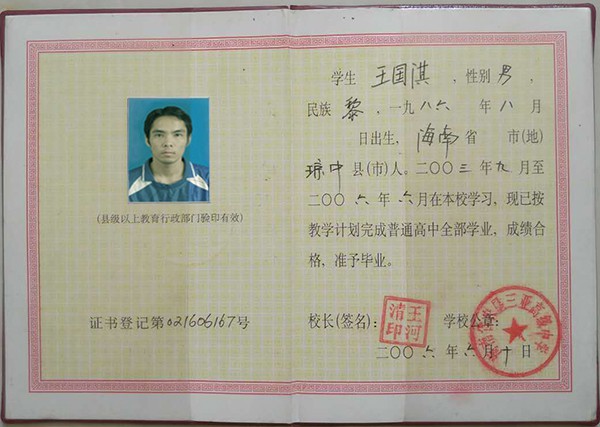 (县级以上教育行政部门验印有效)
证书登记第021606167号
学生 王国淇 ,性别 男 ,
民族 黎 ,一九八六 年 八 月
日出生, 海南 省 市(地)
琼中 县(市)人,二〇〇三 年 九 月至
二〇〇六 年 六 月在本校学习,现已按
教学计划完成普通高中全部学业,成绩合
格,准予毕业。
校长(签名):
王河清印
学校公章:
二〇〇六 年 六 月 十 日